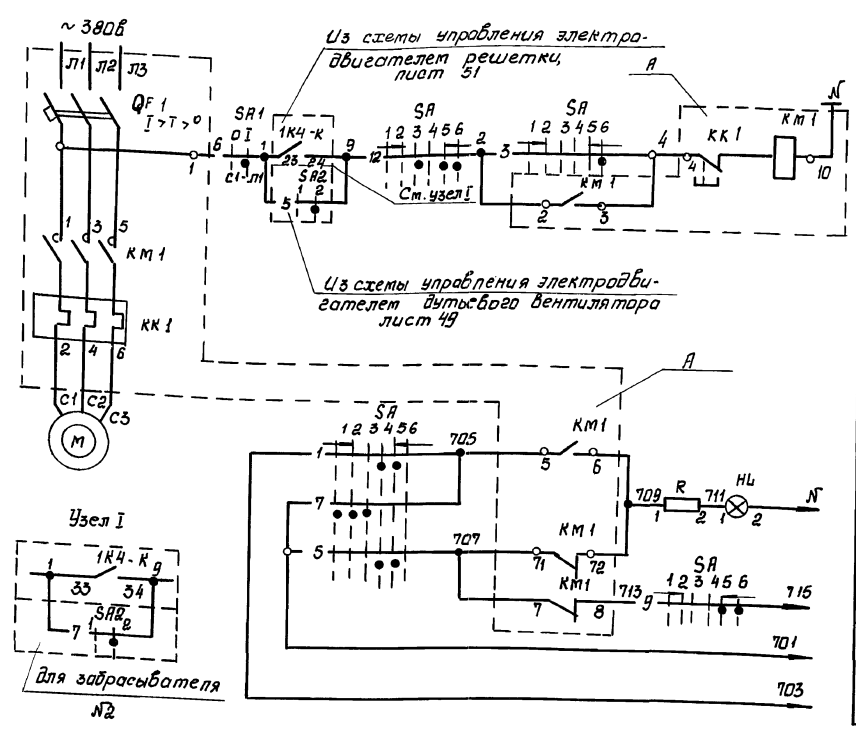 ~ 380в
Л1 Л2 Л3
QF1
I > T > 0
1 3 5
КМ1
КК1
2 4 6
С1 С2 С3
М
Из схемы управления электро-
двигателем решетки,
лист 51
А
1 6
SA1
0 I
С1-Л1
1
1К4-К
23 24
9
SA2
5 1 2
12
SA
1 2 3 4 5 6
См. узел I
2
3
SA
1 2 3 4 5 6
4
КМ1
2 3
4
КК1
КМ1
10
N
Из схемы управления электродви-
гателем дутьевого вентилятора
лист 49
А
SA
1 2 3 4 5 6
1
7
5
705
707
КМ1
5 6
КМ1
71 72
КМ1
7 8
709
R
1 2
711
HL
1 2
N
713
9
SA
1 2 3 4 5 6
715
701
703
Узел I
1
1К4-К
33 34
9
SA2
7 1 2
для забрасывателя
N2